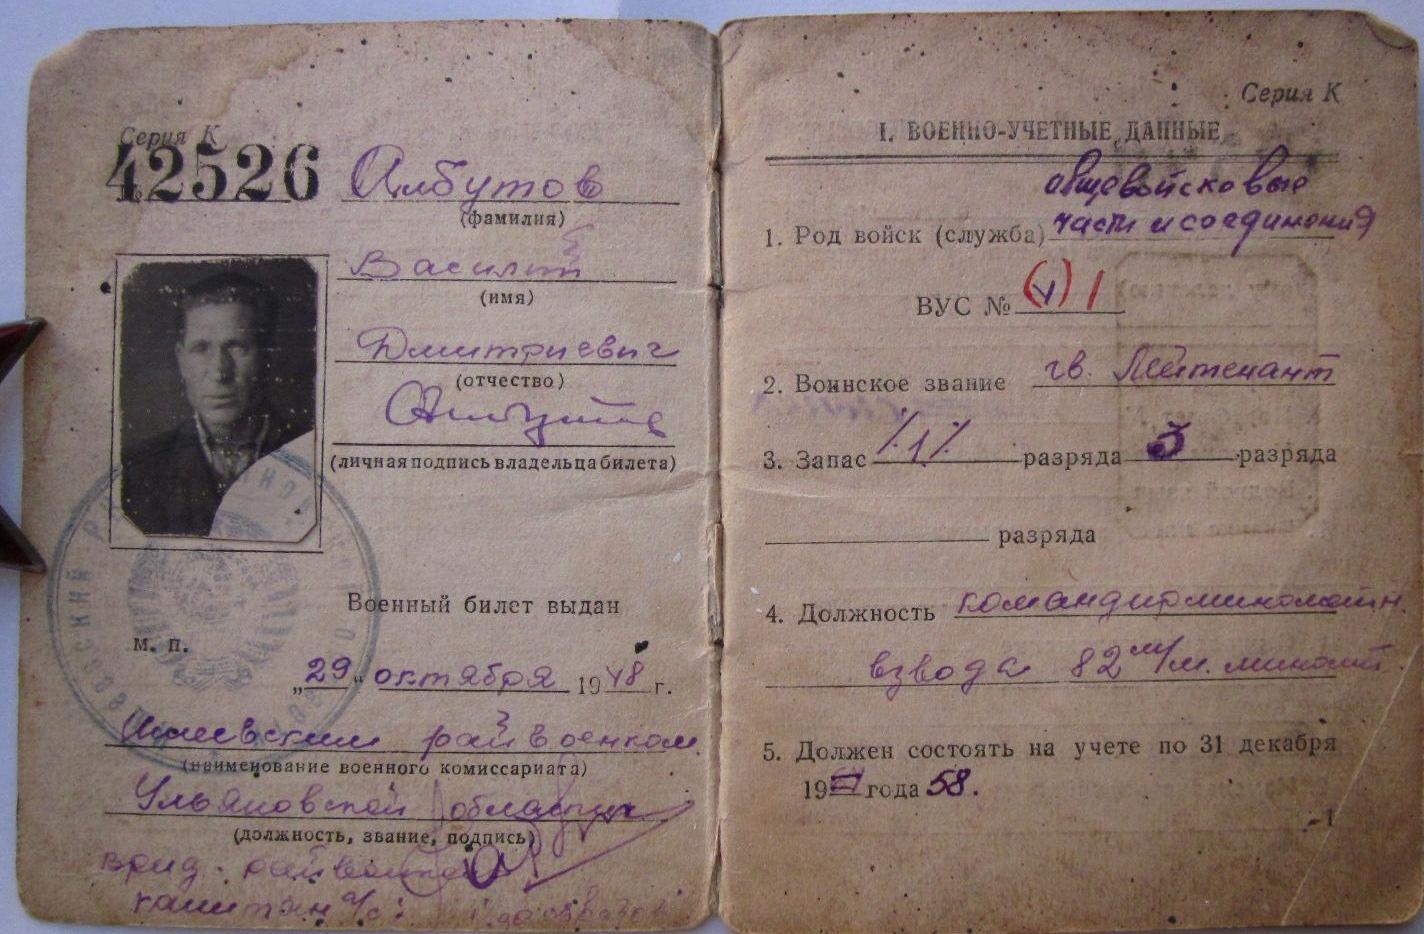 Серия К
42526
Албутов
(фамилия)
Василий
(имя)
Дмитриевич
(отчество)
(личная подпись владельца билета)
Военный билет выдан
М. П.
„29“ октября 1948 г.
райвоенком.
(наименование военного комиссариата)
Ульяновской области
(должность, звание, подпись)
капитан
Серия К
I. ВОЕННО-УЧЕТНЫЕ ДАННЫЕ
общевойсковые
1. Род войск (служба) части и соединения
ВУС № (V) 1
2. Воинское звание гв. Лейтенант
3. Запас 1 разряда 3 разряда
разряда
4. Должность командир минометн.
взвода 82 м/м. миномет.
5. Должен состоять на учете по 31 декабря
19 года 58.
1